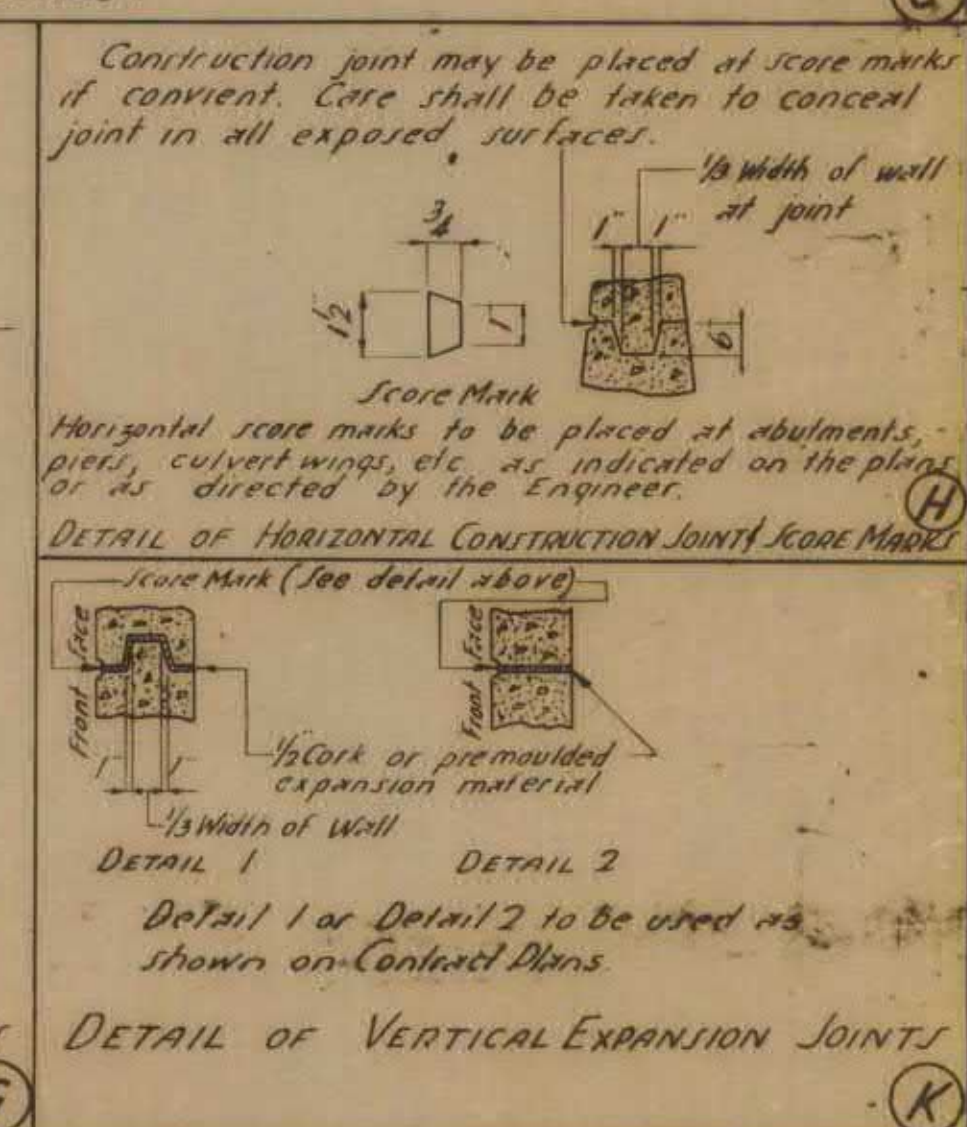 Construction joint may be placed at score marks
if convient. Care shall be taken to conceal
joint in all exposed surfaces.
1/3 Width of wall
at joint
3/4
1" 1"
1 1/2"
1"
6"
Score Mark
Horizontal score marks to be placed at abutments,
piers, culvert wings, etc as indicated on the plans
or as directed by the Engineer.
H
DETAIL OF HORIZONTAL CONSTRUCTION JOINT & SCORE MARKS
Score Mark (See detail above)
Front Face
Front Face
1/2" Cork or premoulded
expansion material
1" 1"
1/3 Width of Wall
DETAIL 1
DETAIL 2
Detail 1 or Detail 2 to be used as
shown on Contract Plans.
DETAIL OF VERTICAL EXPANSION JOINTS
K